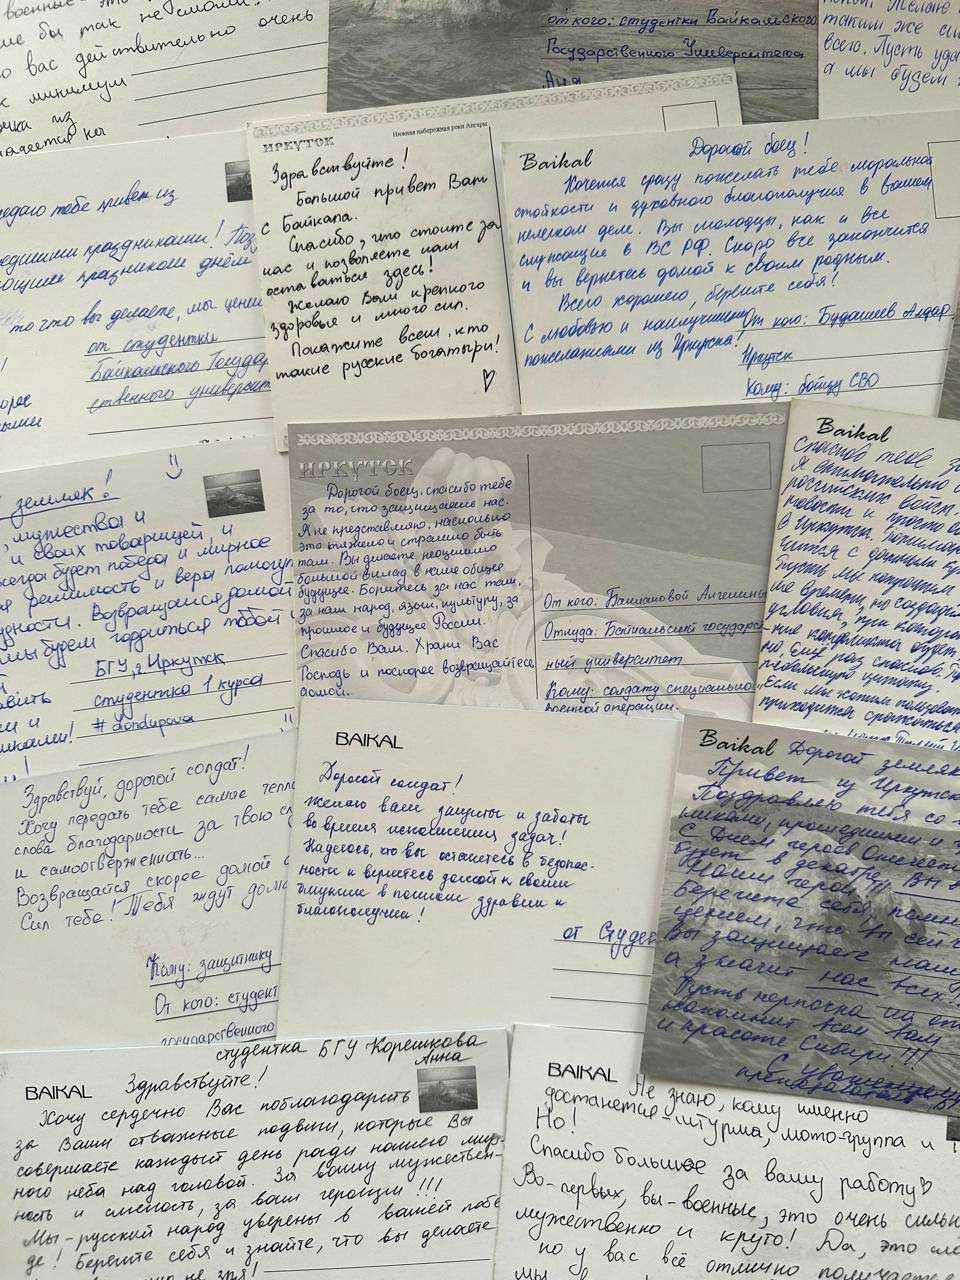 военные - это
не бы так не смогли.
о вас действительно очень
к минимум
очка из
от кого: студентки Байкальского
Государственного Университета
Аня
татим же
всего. Пусть уда
а мы будем
едаю тебе привет из
едшими праздниками! Поз
ющие празником днём
то что вы делаете, мы цени
от студентки
Байкальского Государ
ственного универси
орее
ИРКУТСК
Нижняя набережная реки Ангары
Здравствуйте!
Большой привет Вам
с Байкала.
Спасибо, что стоите за
нас и позволяете нам
оставаться здесь!
Желаю Вам крепкого
здоровья и много сил.
Покажите всем, кто
такие русские богатыри!
♡
Baikal
Дорогой боец!
Хочется сразу пожелать тебе моральной
стойкости и духовного благополучия в вашем
нелегком деле. Вы молодцы, как и все
служащие в ВС РФ. Скоро все закончится
и вы вернетесь домой к своим родным.
Всего хорошего, берегите себя!
С любовью и наилучшими
пожеланиями из Иркутска!
От кого: Будашеев Алдар
Иркутск
Кому: бойцу СВО
земляк!
, мужества и
и своих товарищей, и
всегда будет победа и мирное
я решимость и вера помогут
удности. Возвращайся домой
мы будем гордиться тобой
БГУ, г. Иркутск
студентка 1 курса
# Londupova
ИРКУТСК
Дорогой боец, спасибо тебе
за то, что защищаешь нас.
Я не представляю, насколько
это тяжело и страшно быть
там. Вы делаете неоценимо
большой вклад в наше общее
будущее. Боритесь за нас там,
за наш народ, язык, культуру, за
прошлое и будущее России.
Спасибо Вам. Храни Вас
Господь и поскорее возвращайтесь
домой.
От кого: Башановой Ангелины
Откуда: Байкальский государст
ный университет
Кому: солдату специально
военной операции.
Baikal
Спасибо тебе за
Я внимательно
российских войск.
новости и просто
в Иркутске.
Пусть мы
ие времена, но создади
условия, при которых
ние конфликты будет
но. Еще раз спасибо.
небольшую цитату:
"Если мы хотим пользова
приходится сражаться
Здравствуй, дорогой солдат!
Хочу передать тебе самые тепл
слова благодарности за твою
и самоотверженность...
Возвращайся скорее домой
Сил тебе! Тебя ждут дома
Кому: защитнику
От кого: студент
государственного
BAIKAL
Дорогой солдат!
Желаю вам защиты и заботы
во время исполнения задач!
Надеюсь, что вы останетесь в безопас-
ности и вернетесь домой к своим
близким в полном здравии и
благополучии!
от Студен
Baikal
Дорогой земляк
Привет из Иркутск
Поздравляю тебя со
никами, прошедшими и
С Днем героев Отечест
будет в декабре. Вы
Наши герои!!!
Берегите себя,
что Вы сей
Вы защищаете наш
а значит нас всех!
Пусть нерпочка на от
напомнит всем вам
и красоте Сибири!!!
С уважением
студентка БГУ Корешкова
Анна
BAIKAL
Здравствуйте!
Хочу сердечно Вас поблагодарить
за Ваши отважные подвиги, которые Вы
совершаете каждый день ради нашего мир-
ного неба над головой. За вашу мужествен-
ность и смелость, за ваш героизм!!!
Мы - русский народ уверены в вашей побе
де! Берегите себя и знайте, что вы делаете
не зря!
BAIKAL
Не знаю, кому именно
достанется - штурма, мото-группа и
Но!
Спасибо большое за вашу работу♡
Во-первых, вы - военные, это очень сильн
мужественно и круто! Да, это сло
но у вас всё отлично получается